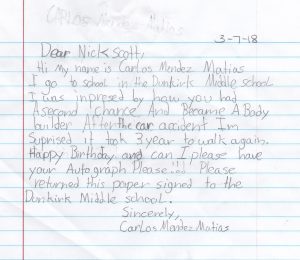 Carlos Mendez Matias
3-7-18
Dear Nick Scott,
Hi My name is Carlos Mendez Matias
I go to school in the Dunkirk Middle school
I was inpresed by how you had
A second chance And Became A Body
builder After the car accident Im
Suprised it took 3 year to walk again.
Happy Birthday and can I please have
your Autograph Please!!! Please
returned this paper signed to the
Dunkirk Middle school.
Sincerely,
Carlos Mendez Matias